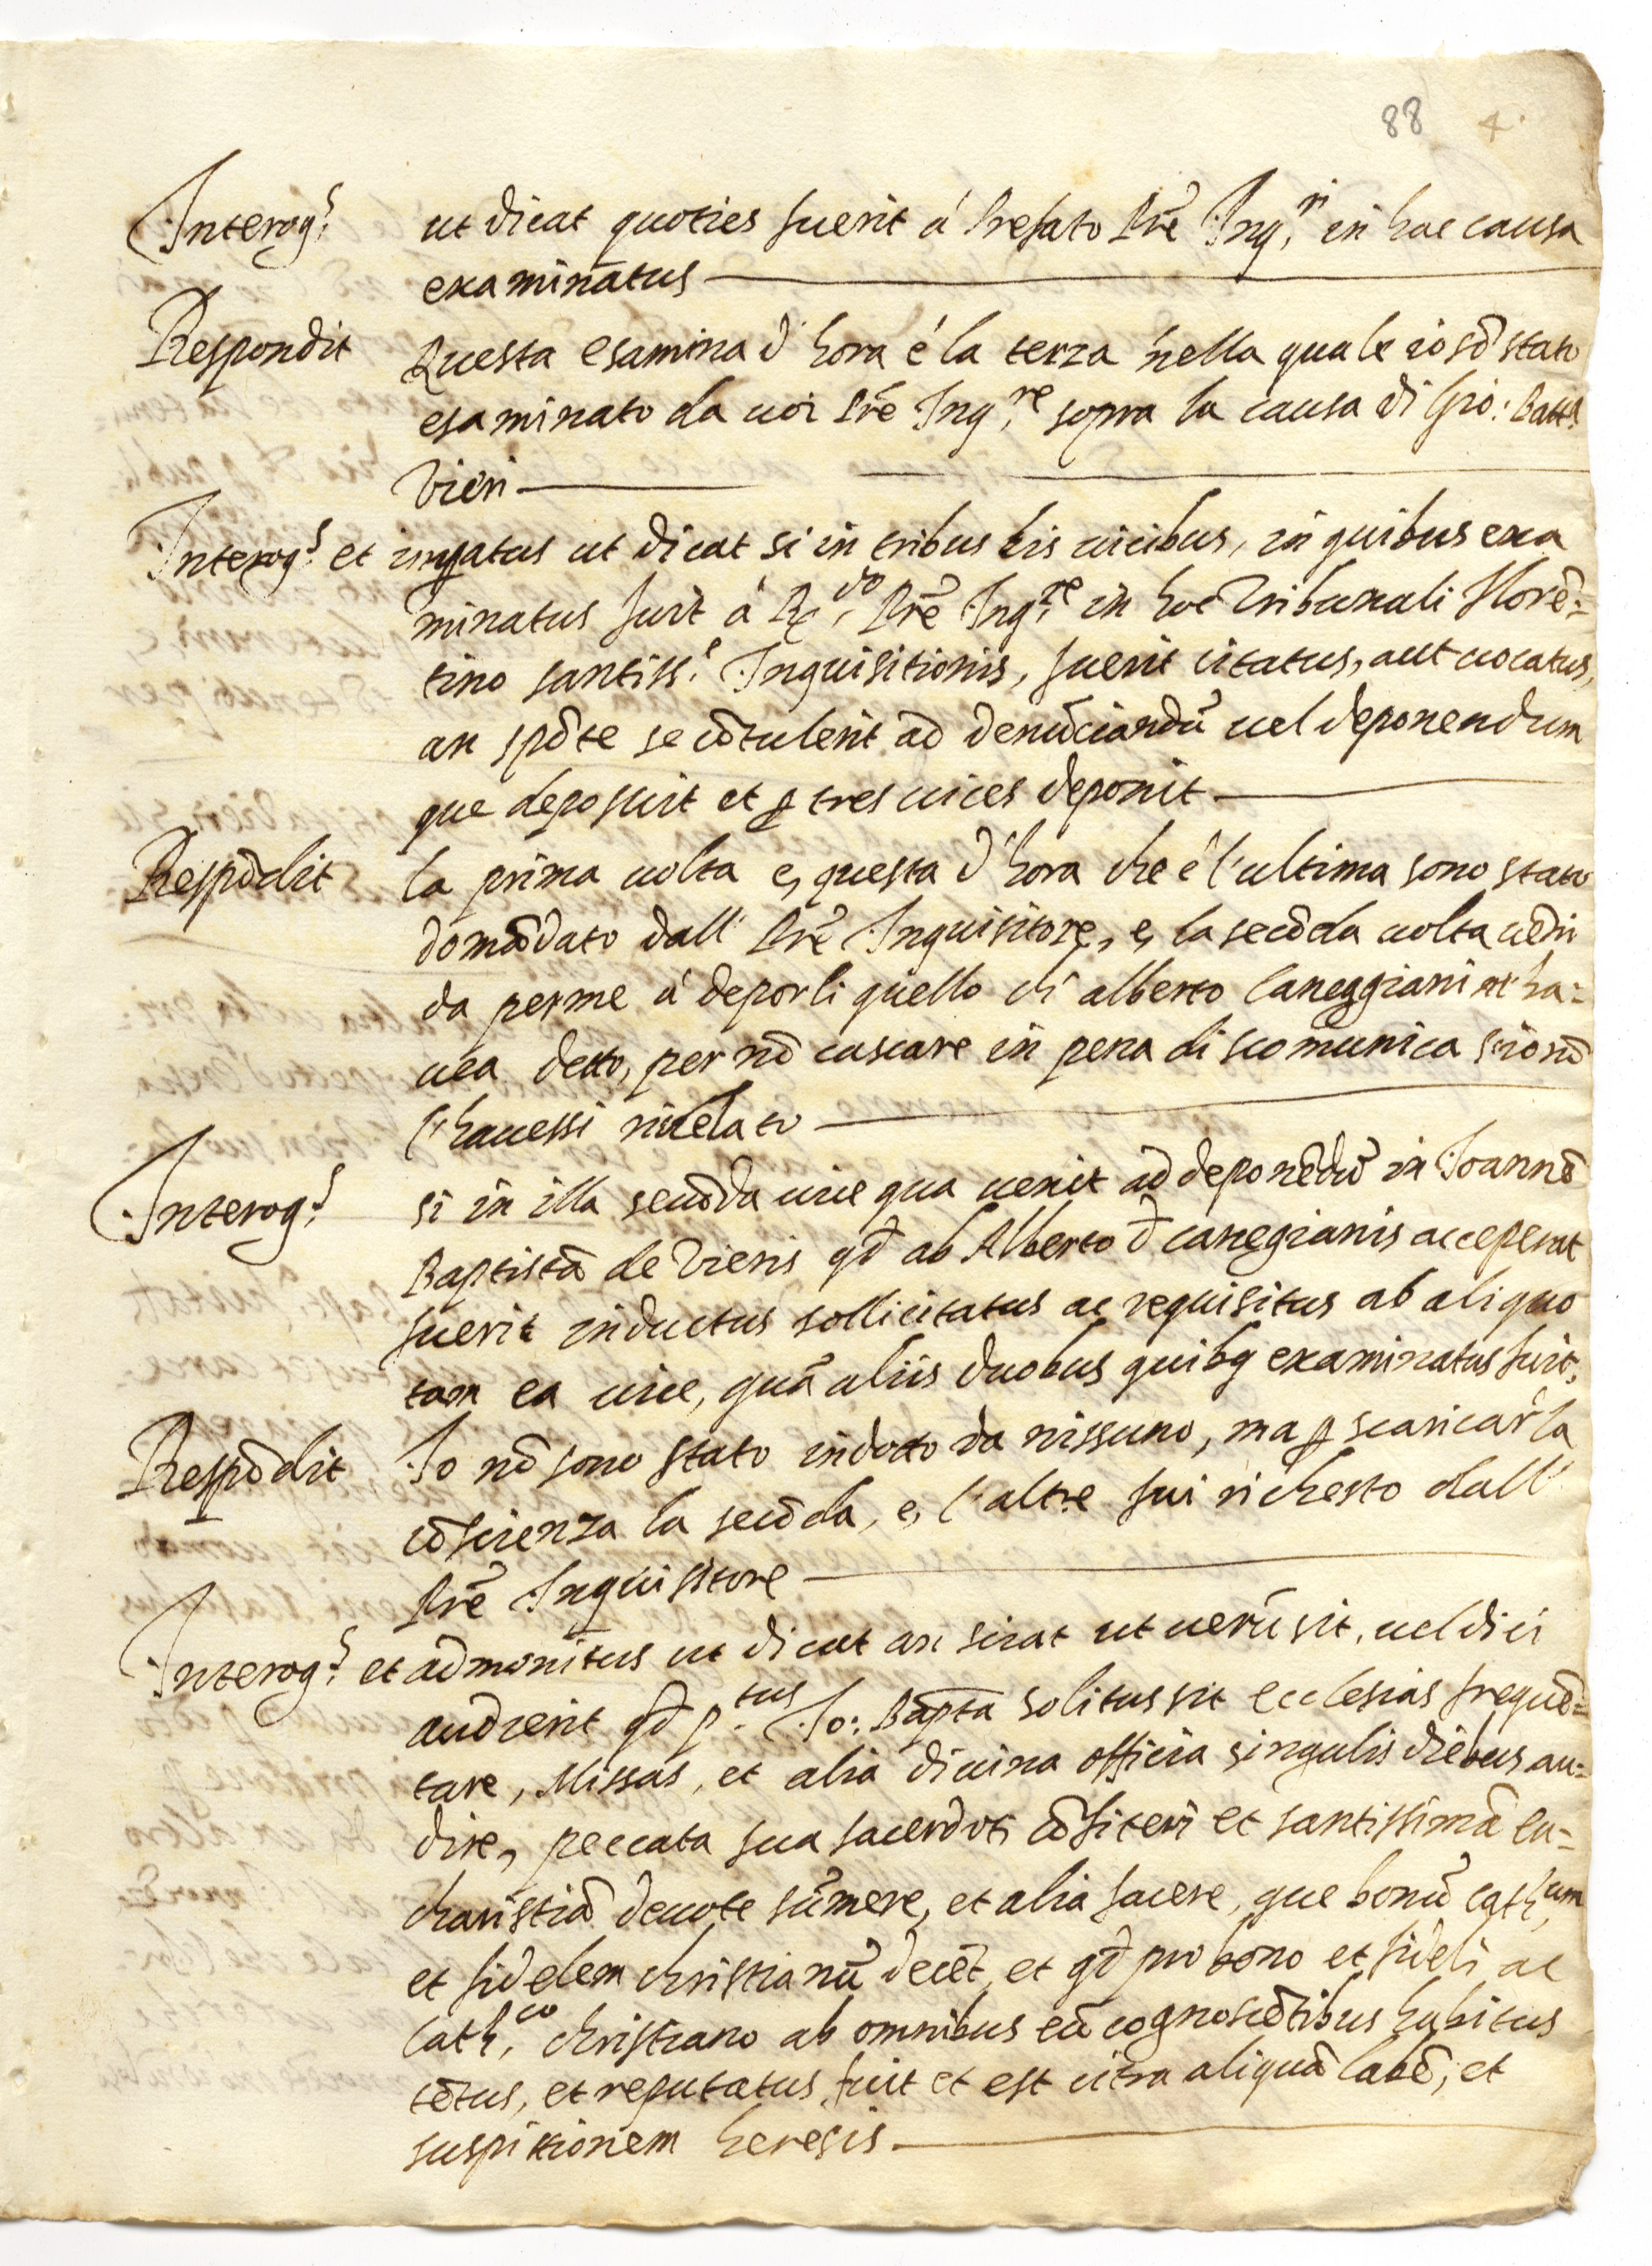 88 4.
Interog.s ut dicat quoties fuerit à Prefato Prē Inq.ri in hac causa
examinatus
Respondit Questa esamina d'hora é la terza nella quale io sō stato
esaminato da uoi Prē Inq.re sopra la causa di Gio: Batt.a
Vieri
Interog.s et ut dicat si in tribus his uicibus, in quibus exa
minatus fuit à R.do Prē Inq.re in hoc Tribunali Florē=
tino santiss.e Inquisitionis, fuerit citatus, aut uocatus,
an spōte se cōtulerit ad denūciandū uel deponendum
que deposuit et ꝑ tres uices deponit
Respōdit la prima uolta e, questa d'hora che é l'ultima sono stato
domādato dall' Prē Inquisitore, e, la secōda uolta uēni
da perme á deporli quello ch' alberto Caneggiani ha=
uea detto, per nō cascare in pena di scomunica s'io nō
l'hauessi riuelato
Interog.s si in illa secūda uice qua uenit ad deponēdū in Joannē
Baptistā de Vieris qđ ab Alberto đ canegianis acceperat
fuerit inductus sollicitatus ac requisitus ab aliquo
tam ea uice, quā aliis duobus quibꝫ examinatus fuit.
Respōdit Io nō sono stato indotto da nissuno, ma ꝑ scaricar la
cōscienza la secōda, e, l'altre fui richesto dall'
Prē Inquisitore
Interog.s et admonitus ut dicat an sciat ut uerū sit, uel dici
audierit qđ p.tus Jo: Bapta solitus sit ecclesias frequē=
tare, Missas, et alia diuina officia singulis diebus au=
dire, peccata sua sacerdoti cōfiteri et santissimā eu=
charistiā deuote sūmere, et alia facere, que bonū cath.um
et fidelem christianū decēt, et qđ pro bono et fideli ac
Cath.co christiano ab omnibus eū cognoscētibus habitus
tētus, et reputatus fuit et est citra aliquā labē, et
suspitionem heresis